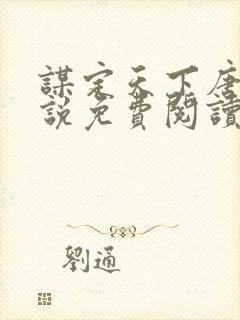 謀定天下唐
說免費閱讀
劉通